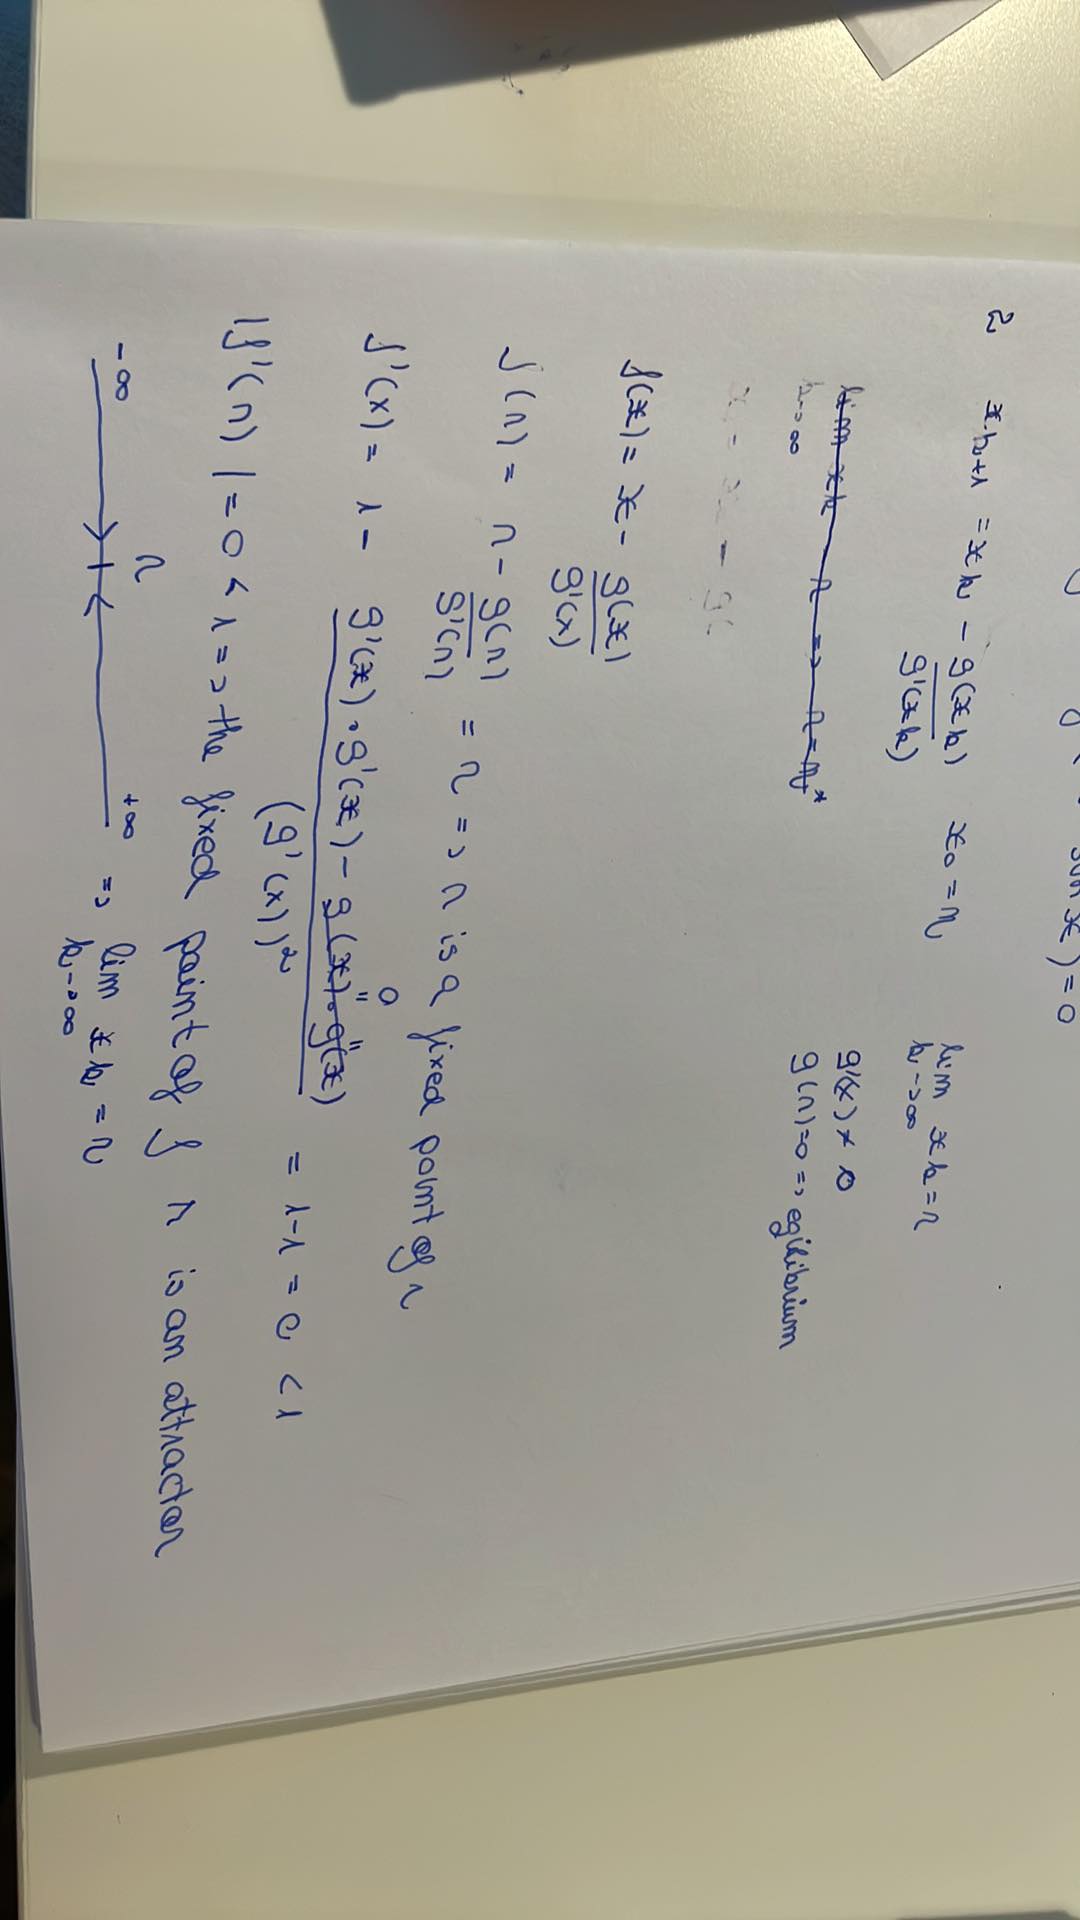 sin x) = 0
2 xk+1 = xk - g(xk)/g'(xk) x0 = η lim k->∞ xk = r
lim k->∞ xk = r => r = η*
g'(x) ≠ 0
g(r)=0 => egilibrium
f(x) = x - g(x)/g'(x)
f(r) = r - g(r)/g'(r) = r => r is a fixed point of r
f'(x) = 1 - (g'(x) · g'(x) - g(x) · g''(x))/(g'(x))² = 1-1 = 0 < 1
0
"
|f'(r)| = 0 < 1 => the fixed point of f r is an attractor
-∞ r +∞ => lim k->∞ xk = r